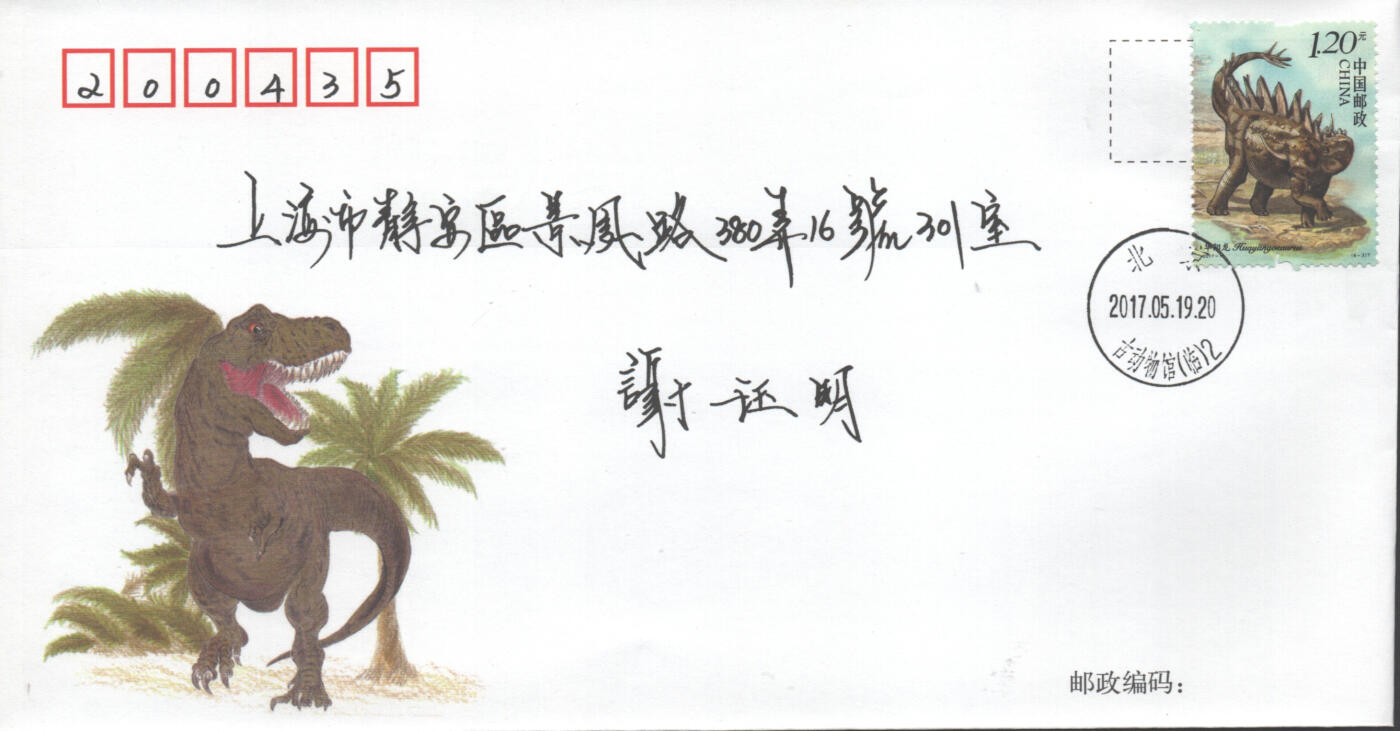 200435
1.20元
中国邮政
CHINA
上海市静安區景鳳路380弄16號301室
华阳龙 Huayangosaurus
北京
2017.05.19.20
古动物馆(临)2
謝证明
邮政编码：